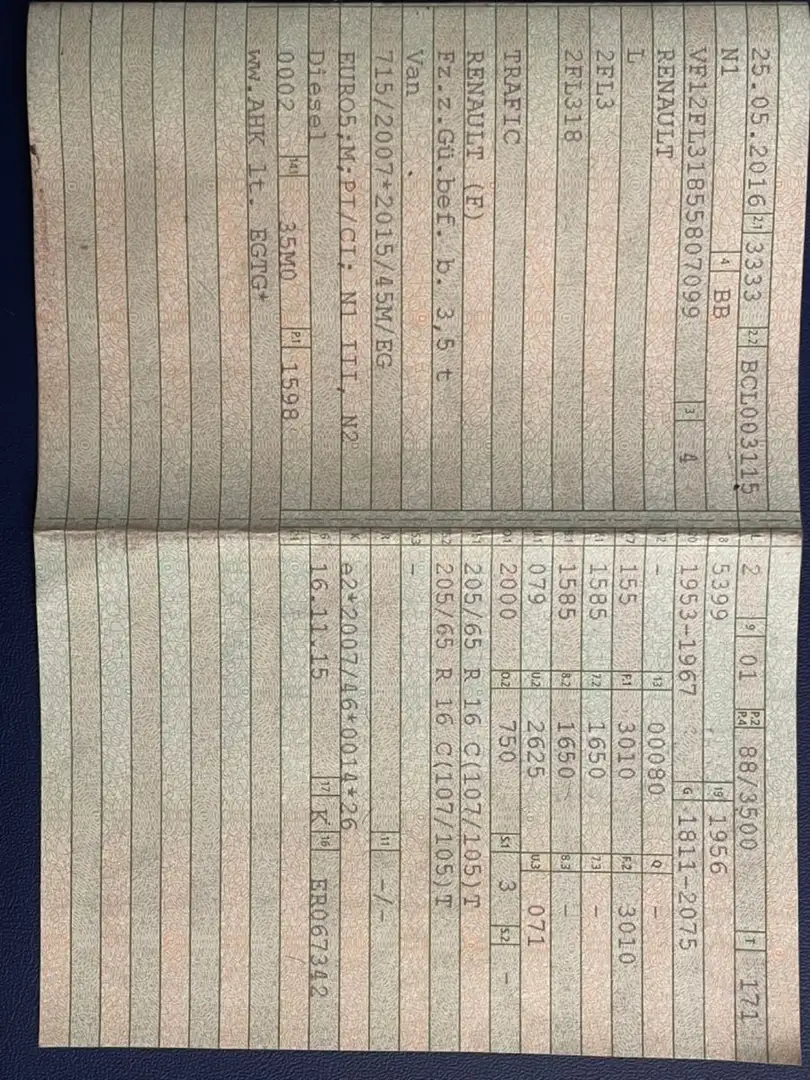 25.05.2016 2.1 3333 2.2 BCL003115
N1 4 BB
VF12FL31855807099 3 4
RENAULT
L
2FL3
2FL318
TRAFIC
RENAULT (F)
Fz.z.Gü.bef. b. 3,5 t
Van
715/2007*2015/45M/EG
EURO5;M;PI/CI; N1 III, N2
Diesel
0002 14.1 35M0 P.1 1598
ww.AHK lt. EGTG*
L 2 9 01 P.2 P.4 88/3500 T 171
8 5399 19 1956
1953-1967 G 1811-2075
12 - 13 00080 Q -
V.7 155 F.1 3010 F.2 3010
1585 7.2 1650 7.3 -
1585 8.2 1650 8.3 -
U.1 079 U.2 2625 U.3 071
O.1 2000 O.2 750 S.1 3 S.2 -
205/65 R 16 C(107/105)T
205/65 R 16 C(107/105)T
-
R 11 -/-
K e2*2007/46*0014*26
6 16.11.15 17 K 16 ER067342